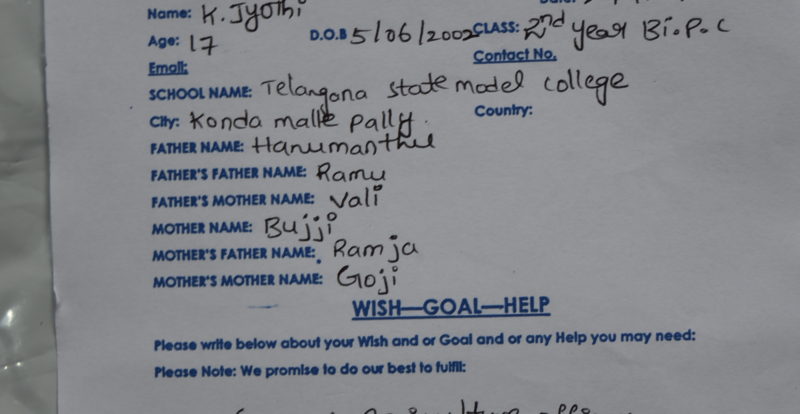 Name: K. Jyothi
Age: 17 D.O.B 5/06/2002 CLASS: 2nd year Bi.P.C
Email: Contact No.
SCHOOL NAME: Telangana state model college
City: Konda malle pally. Country:
FATHER NAME: Hanumanthu
FATHER'S FATHER NAME: Ramu
FATHER'S MOTHER NAME: Vali
MOTHER NAME: Bujji
MOTHER'S FATHER NAME: Ramja
MOTHER'S MOTHER NAME: Goji
WISH—GOAL—HELP
Please write below about your Wish and or Goal and or any Help you may need:
Please Note: We promise to do our best to fulfil: